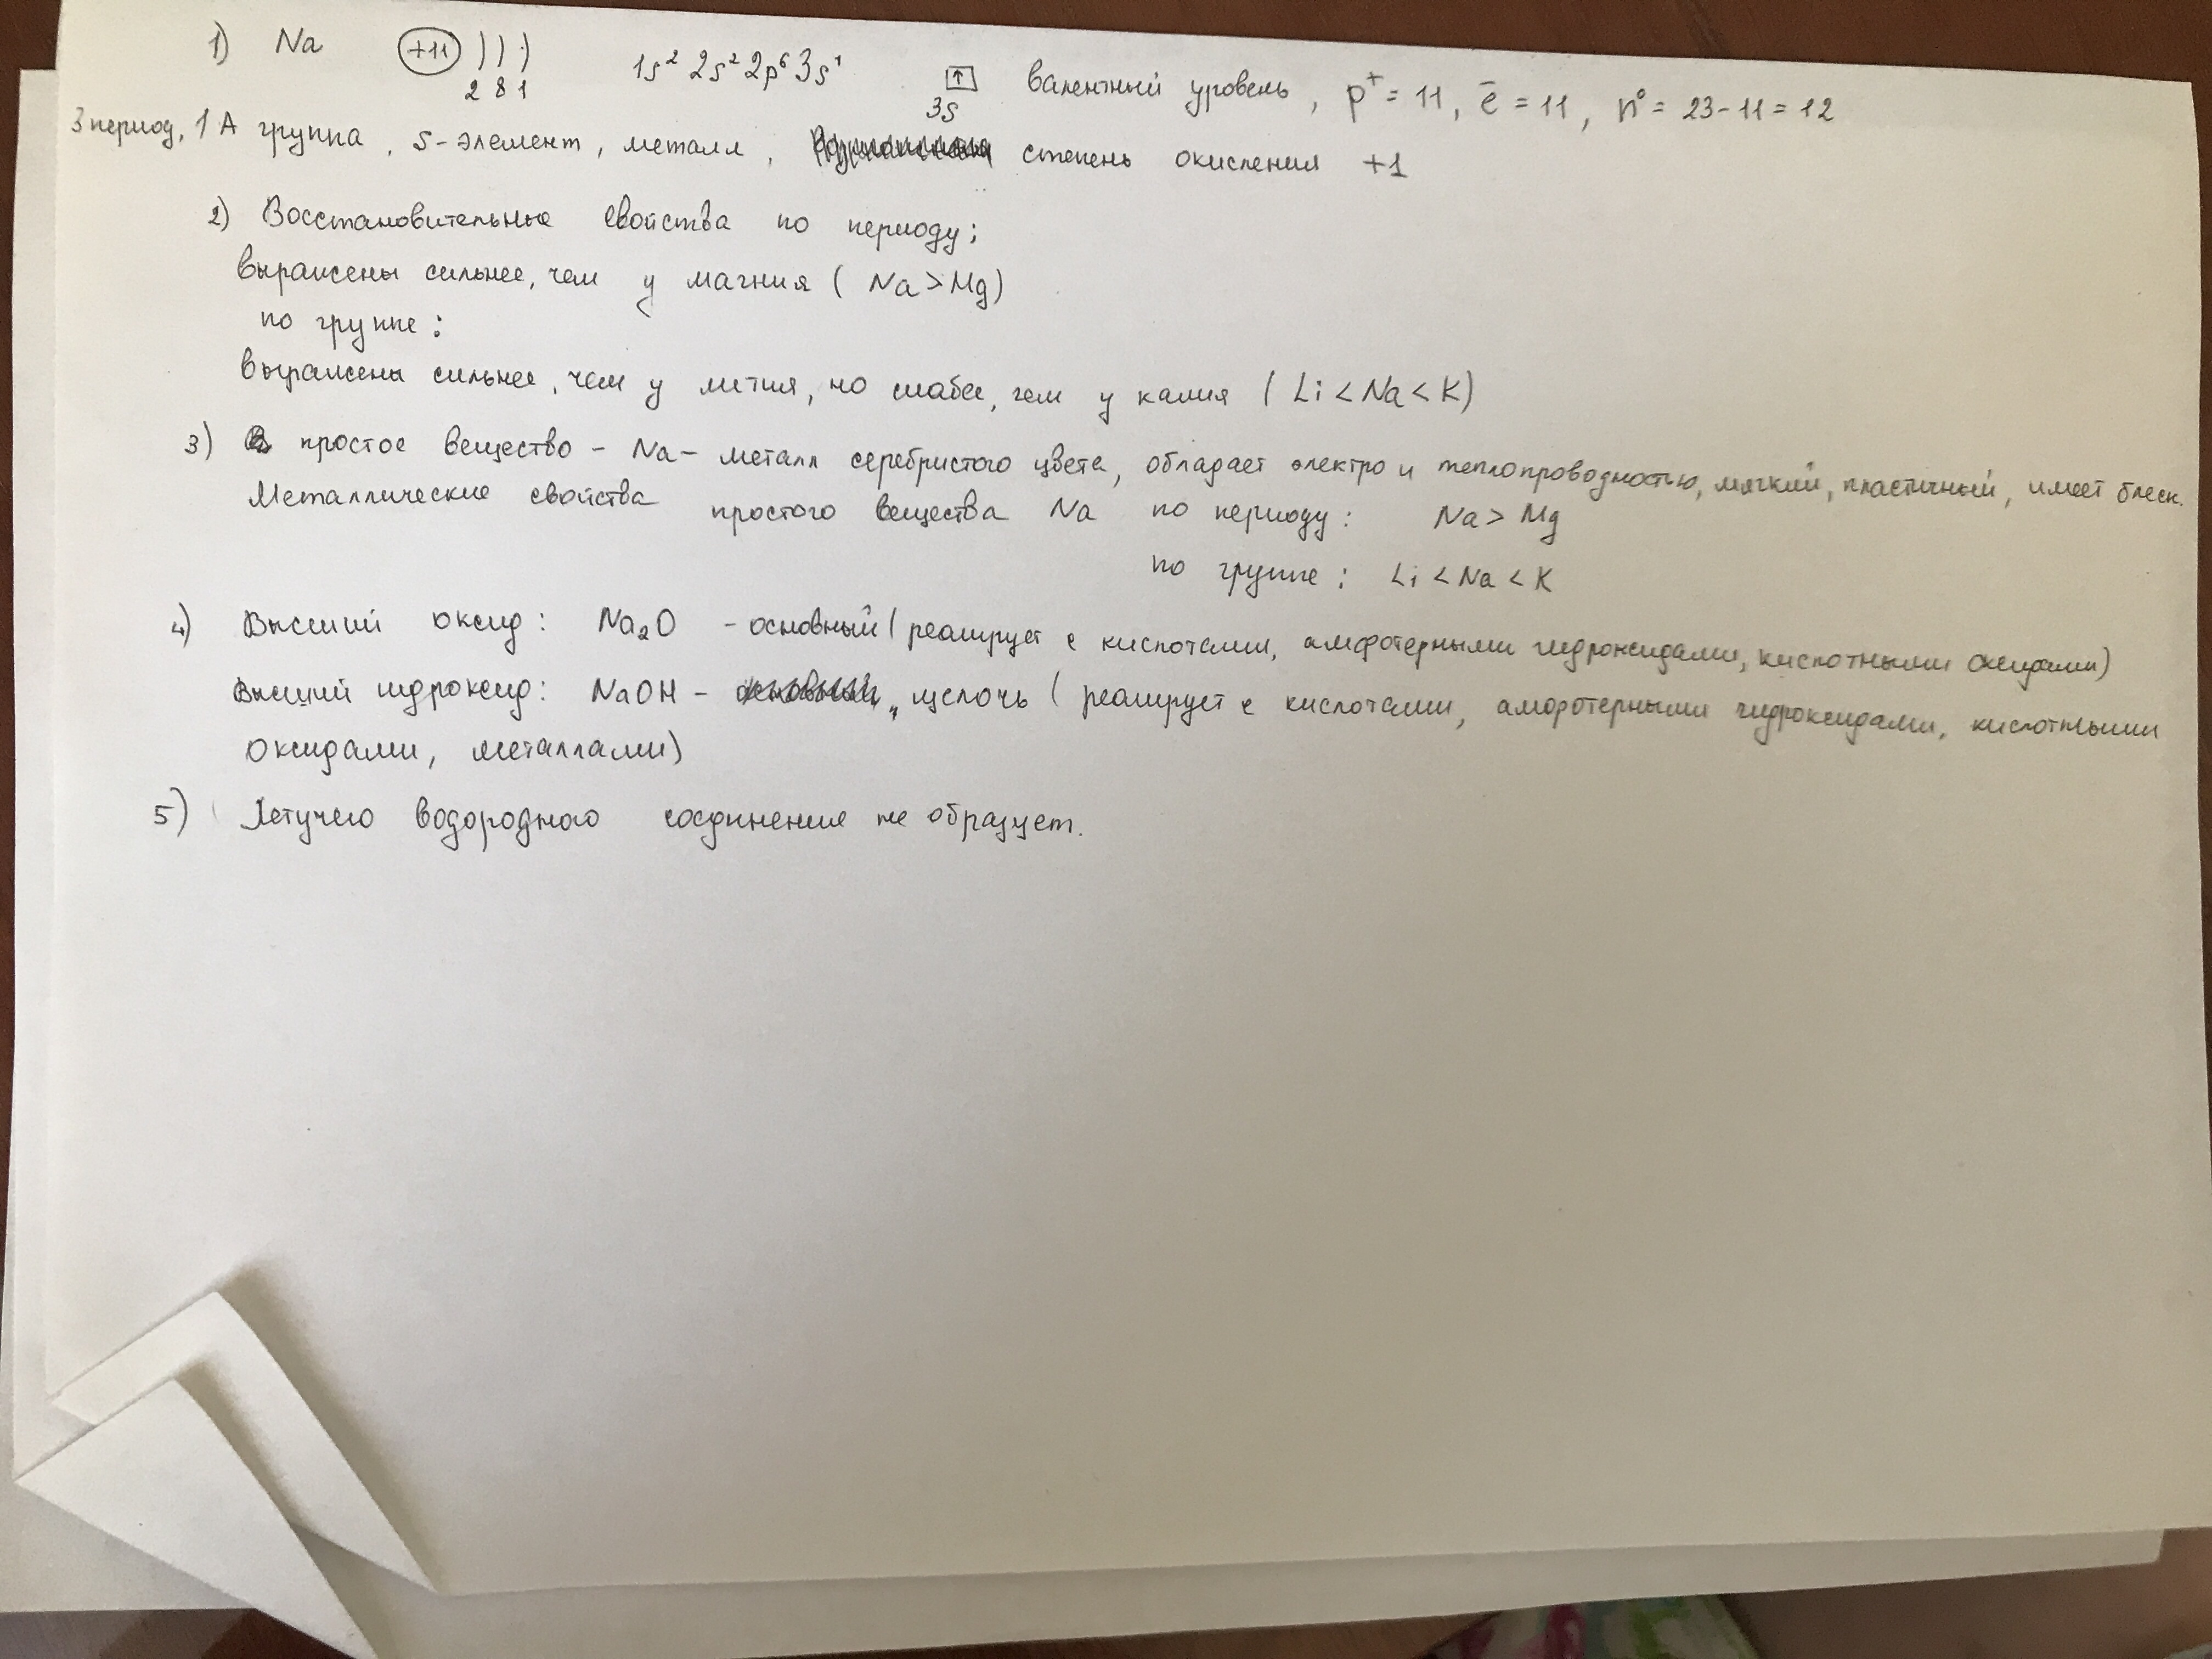 1) Na +11 ) ) ) 1s² 2s² 2p⁶ 3s¹ ↑ валентный уровень, p⁺ = 11, ē = 11, n⁰ = 23-11 = 12
2 8 1 3s
3 период, 1 А группа, s-элемент, металл, степень окисления +1
2) Восстановительные свойства по периоду:
выражены сильнее, чем у магния (Na > Mg)
по группе:
выражены сильнее, чем у лития, но слабее, чем у калия (Li < Na < K)
3) простое вещество - Na - металл серебристого цвета, обладает электро и теплопроводностью, мягкий, пластичный, имеет блеск.
Металлические свойства простого вещества Na по периоду: Na > Mg
по группе: Li < Na < K
4) Высший оксид: Na₂O - основный (реагирует с кислотами, амфотерными гидроксидами, кислотными оксидами)
Высший гидроксид: NaOH - щелочь (реагирует с кислотами, аморотерными гидроксидами, кислотными
оксидами, металлами)
5) Летучего водородного соединение не образует.